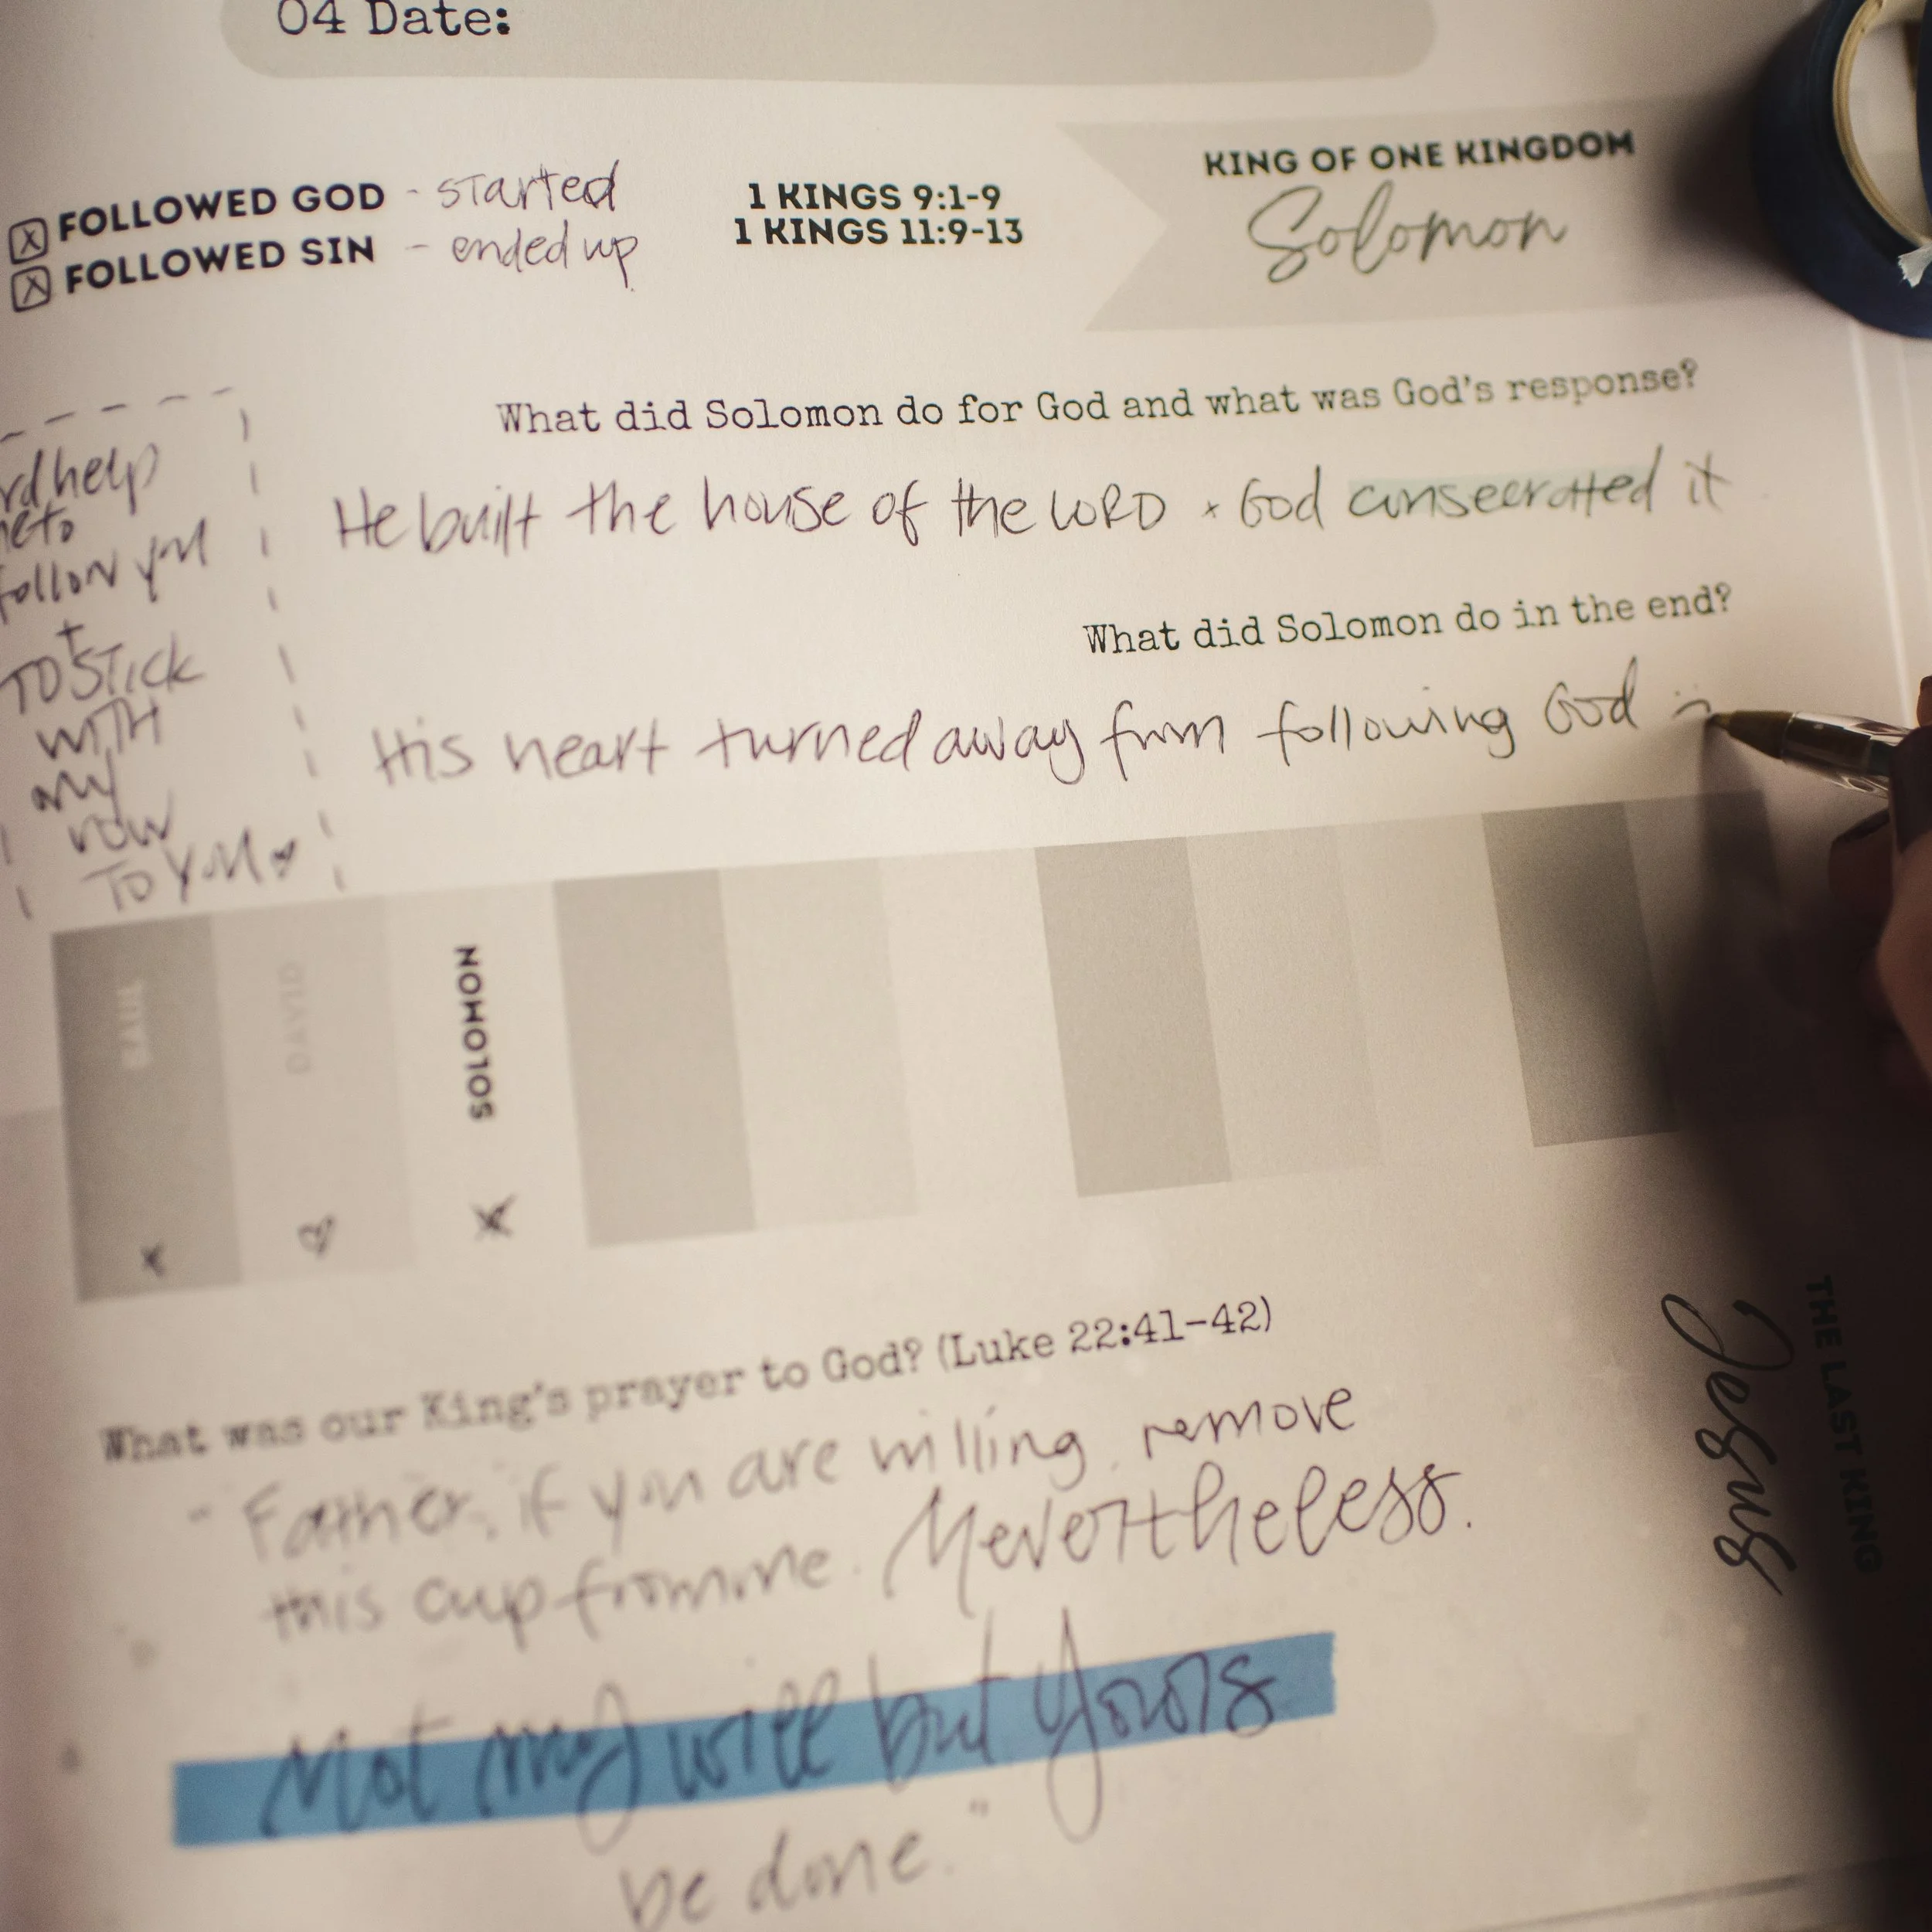 04 Date:
☒ FOLLOWED GOD - started
☒ FOLLOWED SIN - ended up
1 KINGS 9:1-9
1 KINGS 11:9-13
KING OF ONE KINGDOM
Solomon
What did Solomon do for God and what was God's response?
He built the house of the LORD + God consecrated it
What did Solomon do in the end?
His heart turned away from following God
rd help
me to
follow you
+
TO STICK
WITH
my
vow
TO YOU ♥
SAUL
DAVID
SOLOMON
x
♡
x
What was our King's prayer to God? (Luke 22:41-42)
"Father, if you are willing, remove
this cup from me. Nevertheless.
Not my will but yours
be done."
THE LAST KING
Jesus